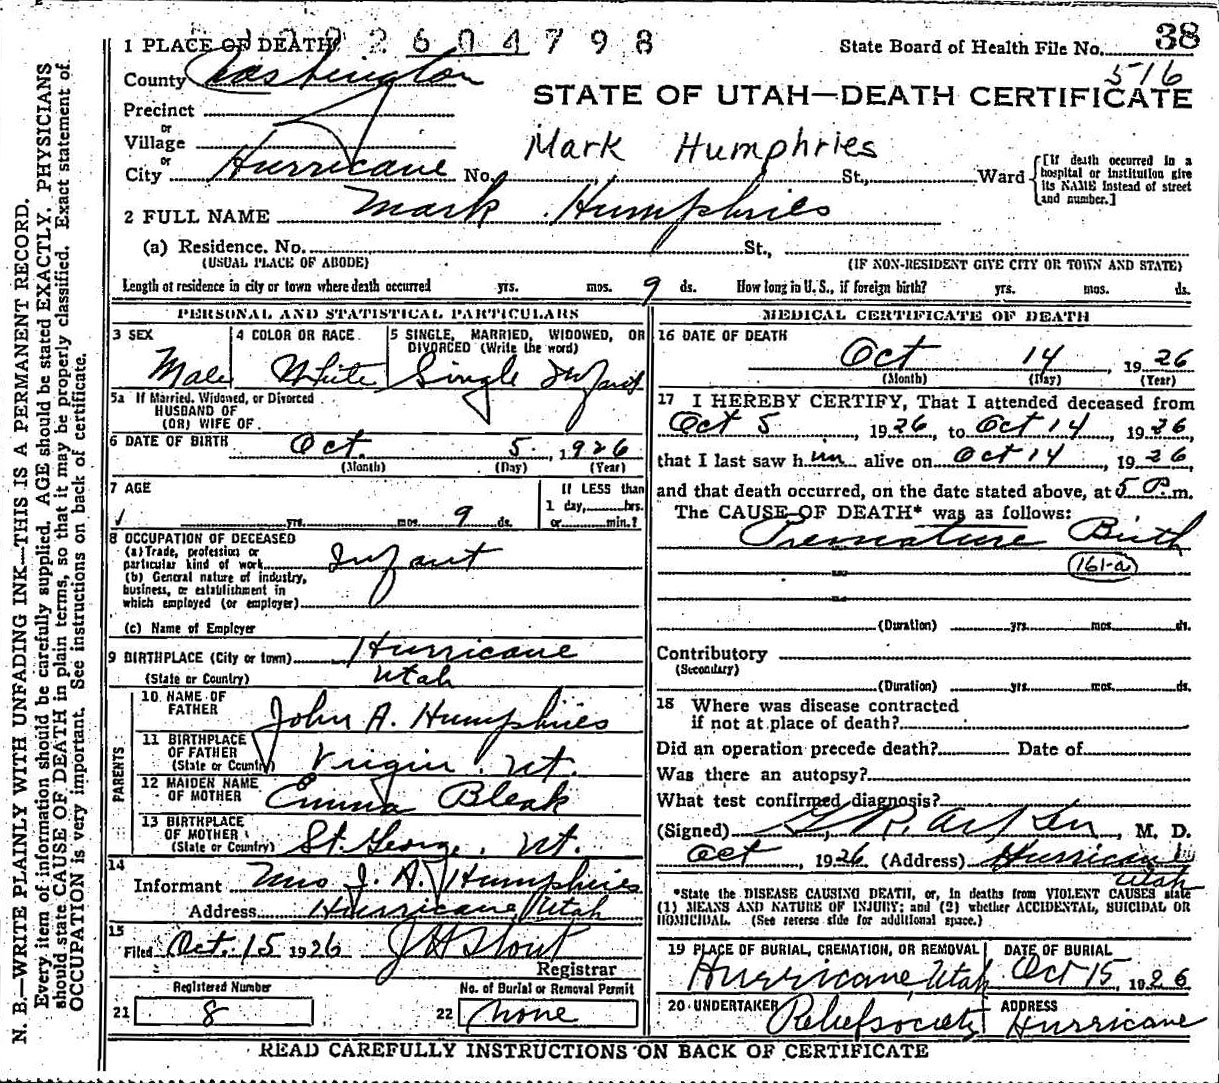 1 PLACE OF DEATH 1 9 2 6 0 4 7 9 8
State Board of Health File No. 38
516
County Washington
STATE OF UTAH—DEATH CERTIFICATE
Precinct
or
Village
Mark Humphries
or
City Hurricane No. St., Ward
[If death occurred in a hospital or institution give its NAME instead of street and number.]
2 FULL NAME Mark Humphries
(a) Residence. No. St.,
(USUAL PLACE OF ABODE) (IF NON-RESIDENT GIVE CITY OR TOWN AND STATE)
Length of residence in city or town where death occurred yrs. mos. 9 ds. How long in U. S., if foreign birth? yrs. mos. ds.
PERSONAL AND STATISTICAL PARTICULARS
3 SEX
Male
4 COLOR OR RACE
White
5 SINGLE, MARRIED, WIDOWED, OR
DIVORCED (Write the word)
Single Infant
5a If Married, Widowed, or Divorced
HUSBAND OF
(OR) WIFE OF
6 DATE OF BIRTH Oct. 5. 1926
(Month) (Day) (Year)
7 AGE
yrs. mos. 9 ds.
If LESS than
1 day, hrs.
or min.?
8 OCCUPATION OF DECEASED
(a) Trade, profession or
particular kind of work Infant
(b) General nature of industry,
business, or establishment in
which employed (or employer)
(c) Name of Employer
9 BIRTHPLACE (City or town) Hurricane
(State or Country) Utah
PARENTS
10 NAME OF
FATHER John A. Humphries
11 BIRTHPLACE
OF FATHER
(State or Country) Virgin, Ut.
12 MAIDEN NAME
OF MOTHER Emma Bleak
13 BIRTHPLACE
OF MOTHER
(State or Country) St. George, Ut.
14
Informant Mrs J. A. Humphries
Address Hurricane, Utah
15
Filed Oct. 15 1926 J H Stout
Registrar
Registered Number No. of Burial or Removal Permit
21 8 22 none
MEDICAL CERTIFICATE OF DEATH
16 DATE OF DEATH
Oct 14 1926
(Month) (Day) (Year)
17 I HEREBY CERTIFY, That I attended deceased from
Oct 5, 1926, to Oct 14, 1926,
that I last saw h im alive on Oct 14, 1926,
and that death occurred, on the date stated above, at 5 P.m.
The CAUSE OF DEATH* was as follows:
Premature Birth
161-a
(Duration) yrs. mos. ds.
Contributory
(Secondary)
(Duration) yrs. mos. ds.
18 Where was disease contracted
if not at place of death?
Did an operation precede death? Date of
Was there an autopsy?
What test confirmed diagnosis?
(Signed) M. D.
Oct, 1926 (Address) Hurricane
Utah
*State the DISEASE CAUSING DEATH, or, in deaths from VIOLENT CAUSES state
(1) MEANS AND NATURE OF INJURY; and (2) whether ACCIDENTAL, SUICIDAL OR
HOMICIDAL. (See reverse side for additional space.)
19 PLACE OF BURIAL, CREMATION, OR REMOVAL
Hurricane, Utah
DATE OF BURIAL
Oct 15, 1926
20 UNDERTAKER
Relief society
ADDRESS
Hurricane
READ CAREFULLY INSTRUCTIONS ON BACK OF CERTIFICATE
N. B.—WRITE PLAINLY WITH UNFADING INK—THIS IS A PERMANENT RECORD.
Every item of information should be carefully supplied. AGE should be stated EXACTLY. PHYSICIANS
should state CAUSE OF DEATH in plain terms, so that it may be properly classified. Exact statement of
OCCUPATION is very important. See instructions on back of certificate.